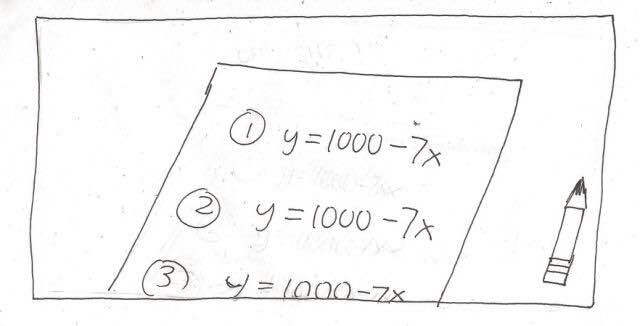 ① y=1000-7x
② y=1000-7x
③ y=1000-7x